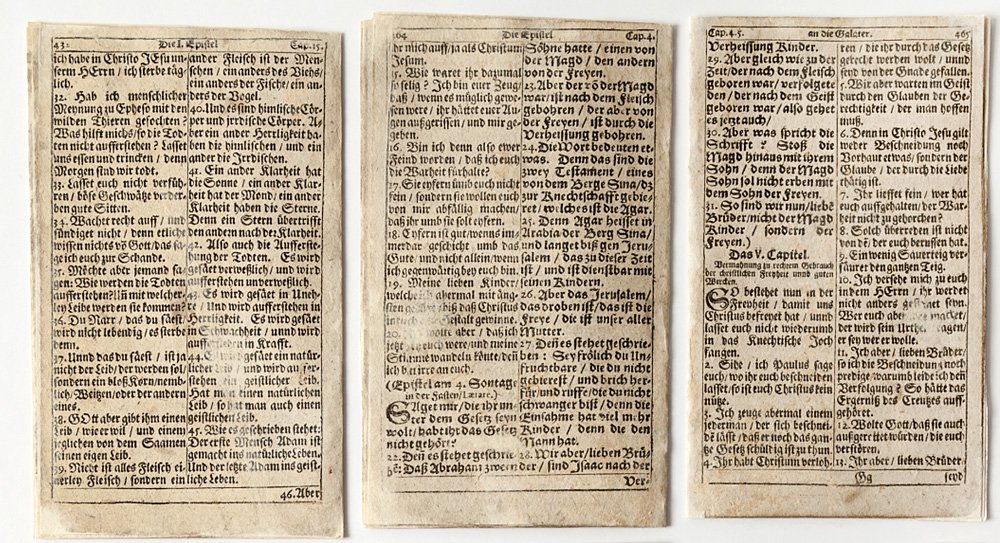 43
Die I. Epistel
Cap. 15.
ich habe in Christo JEsu un-
serm HErrn / ich sterbe täg-
lich.
32. Hab ich menschlicher
Meynung zu Epheso mit den
wilden Thieren gefochten?
Was hilfts mich / so die Tod-
ten nicht aufferstehen? Lasset
uns essen und trincken / denn
Morgen sind wir todt.
33. Lasset euch nicht verfüh-
ren / böse Geschwätze verder-
ben gute Sitten.
34. Wachet recht auff / und
sündiget nicht / denn etliche
wissen nichts võ Gott / das sa-
ge ich euch zur Schande.
35. Möchte aber jemand sa-
gen: Wie werden die Todten
aufferstehen? uñ mit welcher-
ley Leibe werden sie kommen?
36. Du Narr / das du säest /
wird nicht lebendig / es sterbe
denn.
37. Unnd das du säest / ist ja
nicht der Leib / der werden sol /
sondern ein bloß Korn / nemb-
lich / Weitzen / oder der andern
eines.
38. GOtt aber gibt ihm einen
Leib / wie er wil / und einem
jeglichen von dem Saamen
seinen eigen Leib.
39. Nicht ist alles Fleisch ei-
nerley Fleisch / sondern ein
ander Fleisch ist der Men-
schen / ein anders des Viehs /
ein anders der Fische / ein an-
ders der Vogel.
40. Und es sind himlische Cör-
per und jrrdische Cörper. A-
ber ein ander Herrligkeit ha-
ben die himlischen / und ein
ander die Jrrdischen.
41. Ein ander Klarheit hat
die Sonne / ein ander Klar-
heit hat der Mond / ein ander
Klarheit haben die Sterne.
Denn ein Stern übertrifft
den andern nach der Klarheit.
42. Also auch die Aufferste-
hung der Todten. Es wird
gesäet verweßlich / und wird
aufferstehen unverweßlich.
43. Es wird gesäet in Uneh-
re / Und wird aufferstehen in
Herrligkeit. Es wird gesäet
in Schwachheit / unnd wird
aufferstehen in Krafft.
44. Es wird gesäet ein natür-
licher Leib / und wird auffer-
stehen ein geistlicher Leib.
Hat man einen natürlichen
Leib / so hat man auch einen
geistlichen Leib.
45. Wie es geschrieben stehet:
Der erste Mensch Adam ist
gemacht ins natürliche Leben.
Und der letzte Adam ins geist-
liche Leben.
46. Aber
64
Die Epistel
Cap. 4.
ihr mich auff / ja als Christum
Jesum.
15. Wie waret ihr dazumal
so selig? Ich bin euer Zeug /
daß / wenn es müglich gewe-
sen were / ihr hättet euer Au-
gen außgerissen / und mir ge-
geben.
16. Bin ich denn also ewer
Feind worden / daß ich euch
die Warheit fürhalte?
17. Sie eyfern umb euch nicht
fein / sondern sie wollen euch
von mir abfällig machen /
daß ihr umb sie solt eifern.
18. Eyfern ist gut / wenns im-
merdar geschicht umb das
Gute / und nicht allein / wenn
ich gegenwärtig bey euch bin.
19. Meine lieben Kinder /
welche ich abermal mit äng-
sten gebäre / biß daß Christus
in euch Gestalt gewinne.
20. Ich wolte aber / daß ich
jetzt bey euch were / und meine
Stimme wandeln könte / deñ
ich bin irre an euch.
(Epistel am 4. Sontage
in der Fasten / Lætare.)
21. Saget mir / die ihr un-
ter dem Gesetz seyn
wolt / habt ihr das Gesetz
nicht gehört?
22. Deñ es stehet geschrie-
bẽ: Daß Abraham zween
Söhne hatte / einen von
der Magd / den andern
von der Freyen.
23. Aber der võ der Magd
war / ist nach dem Fleisch
gebohren / der aber von
der Freyen / ist durch die
Verheissung gebohren.
24. Die Wort bedeuten et-
was. Denn das sind die
zwey Testament / eines
von dem Berge Sina / dz
zur Knechtschafft gebie-
ret / welches ist die Agar.
25. Denn Agar heisset in
Arabia der Berg Sina /
und langet biß gen Jeru-
salem / das zu dieser Zeit
ist / und ist dienstbar mit
seinen Kindern.
26. Aber das Jerusalem /
das droben ist / das ist die
Freye / die ist unser aller
Mutter.
27 Deñ es stehet geschrie-
ben: Sey frölich du Un-
fruchtbare / die du nicht
gebierest / und brich her-
für / und ruffe / die du nicht
schwanger bist / denn die
Einsahme hat viel mehr
Kinder / denn die den
Mann hat.
28. Wir aber / lieben Brü-
der / sind Isaac nach der
Ver-
Cap. 4. 5.
an die Galater.
465
Verheissung Kinder.
29. Aber gleich wie zu der
Zeit / der nach dem Fleisch
geboren war / verfolgete
den / der nach dem Geist
geboren war / also gehet
es jetzt auch /
30. Aber was spricht die
Schrifft? Stoß die
Magd hinaus mit ihrem
Sohn / denn der Magd
Sohn sol nicht erben mit
dem Sohn der Freyen.
31. So sind wir nun / liebẽ
Brüder / nicht der Magd
Kinder / sondern der
Freyen.)
Das V. Capitel.
Vermahnung zu rechtem Gebrauch
der christlichen Freyheit und guten
Wercken.
SO bestehet nun in der
Freyheit / damit uns
Christus befreyet hat / unnd
lasset euch nicht wiederumb
in das Knechtische Joch
fangen.
2. Sihe / ich Paulus sage
euch / wo ihr euch beschneiden
lasset / so ist euch Christus kein
nütze.
3. Ich zeuge abermal einem
jederman / der sich beschnei-
dẽ lässt / daß er noch das gan-
tze Gesetz schüldig ist zu thun.
4. Ihr habt Christum verloh-
ren / die ihr durch das Gesetz
gerecht werden wolt / unnd
seyd von der Gnade gefallen.
5. Wir aber warten im Geist
durch den Glauben der Ge-
rechtigkeit / der man hoffen
muß.
6. Denn in Christo Jesu gilt
weder Beschneidung noch
Vorhaut etwas / sondern der
Glaube / der durch die Liebe
thätig ist.
7. Ihr lieffet fein / wer hat
euch auffgehalten / der War-
heit nicht zu gehorchen?
8. Solch überreden ist nicht
von dẽ / der euch beruffen hat.
9. Ein wenig Sauerteig ver-
säuret den gantzen Teig.
10. Ich versehe mich zu euch
in den HErrn / ihr werdet
nicht anders gesinnet seyn.
Wer euch aber irre machet /
der wird sein Urtheil tragen /
er sey wer er wolle.
11. Ich aber / lieben Brüder /
so ich die Beschneidung noch
predige / warumb leide ich deñ
Verfolgung? So hätte das
Ergerniß des Creutzes auff-
gehöret.
12. Wolte Gott / daß sie auch
außgerottet würden / die euch
verstören.
13. Ihr aber / lieben Brüder /
Gg
seyd